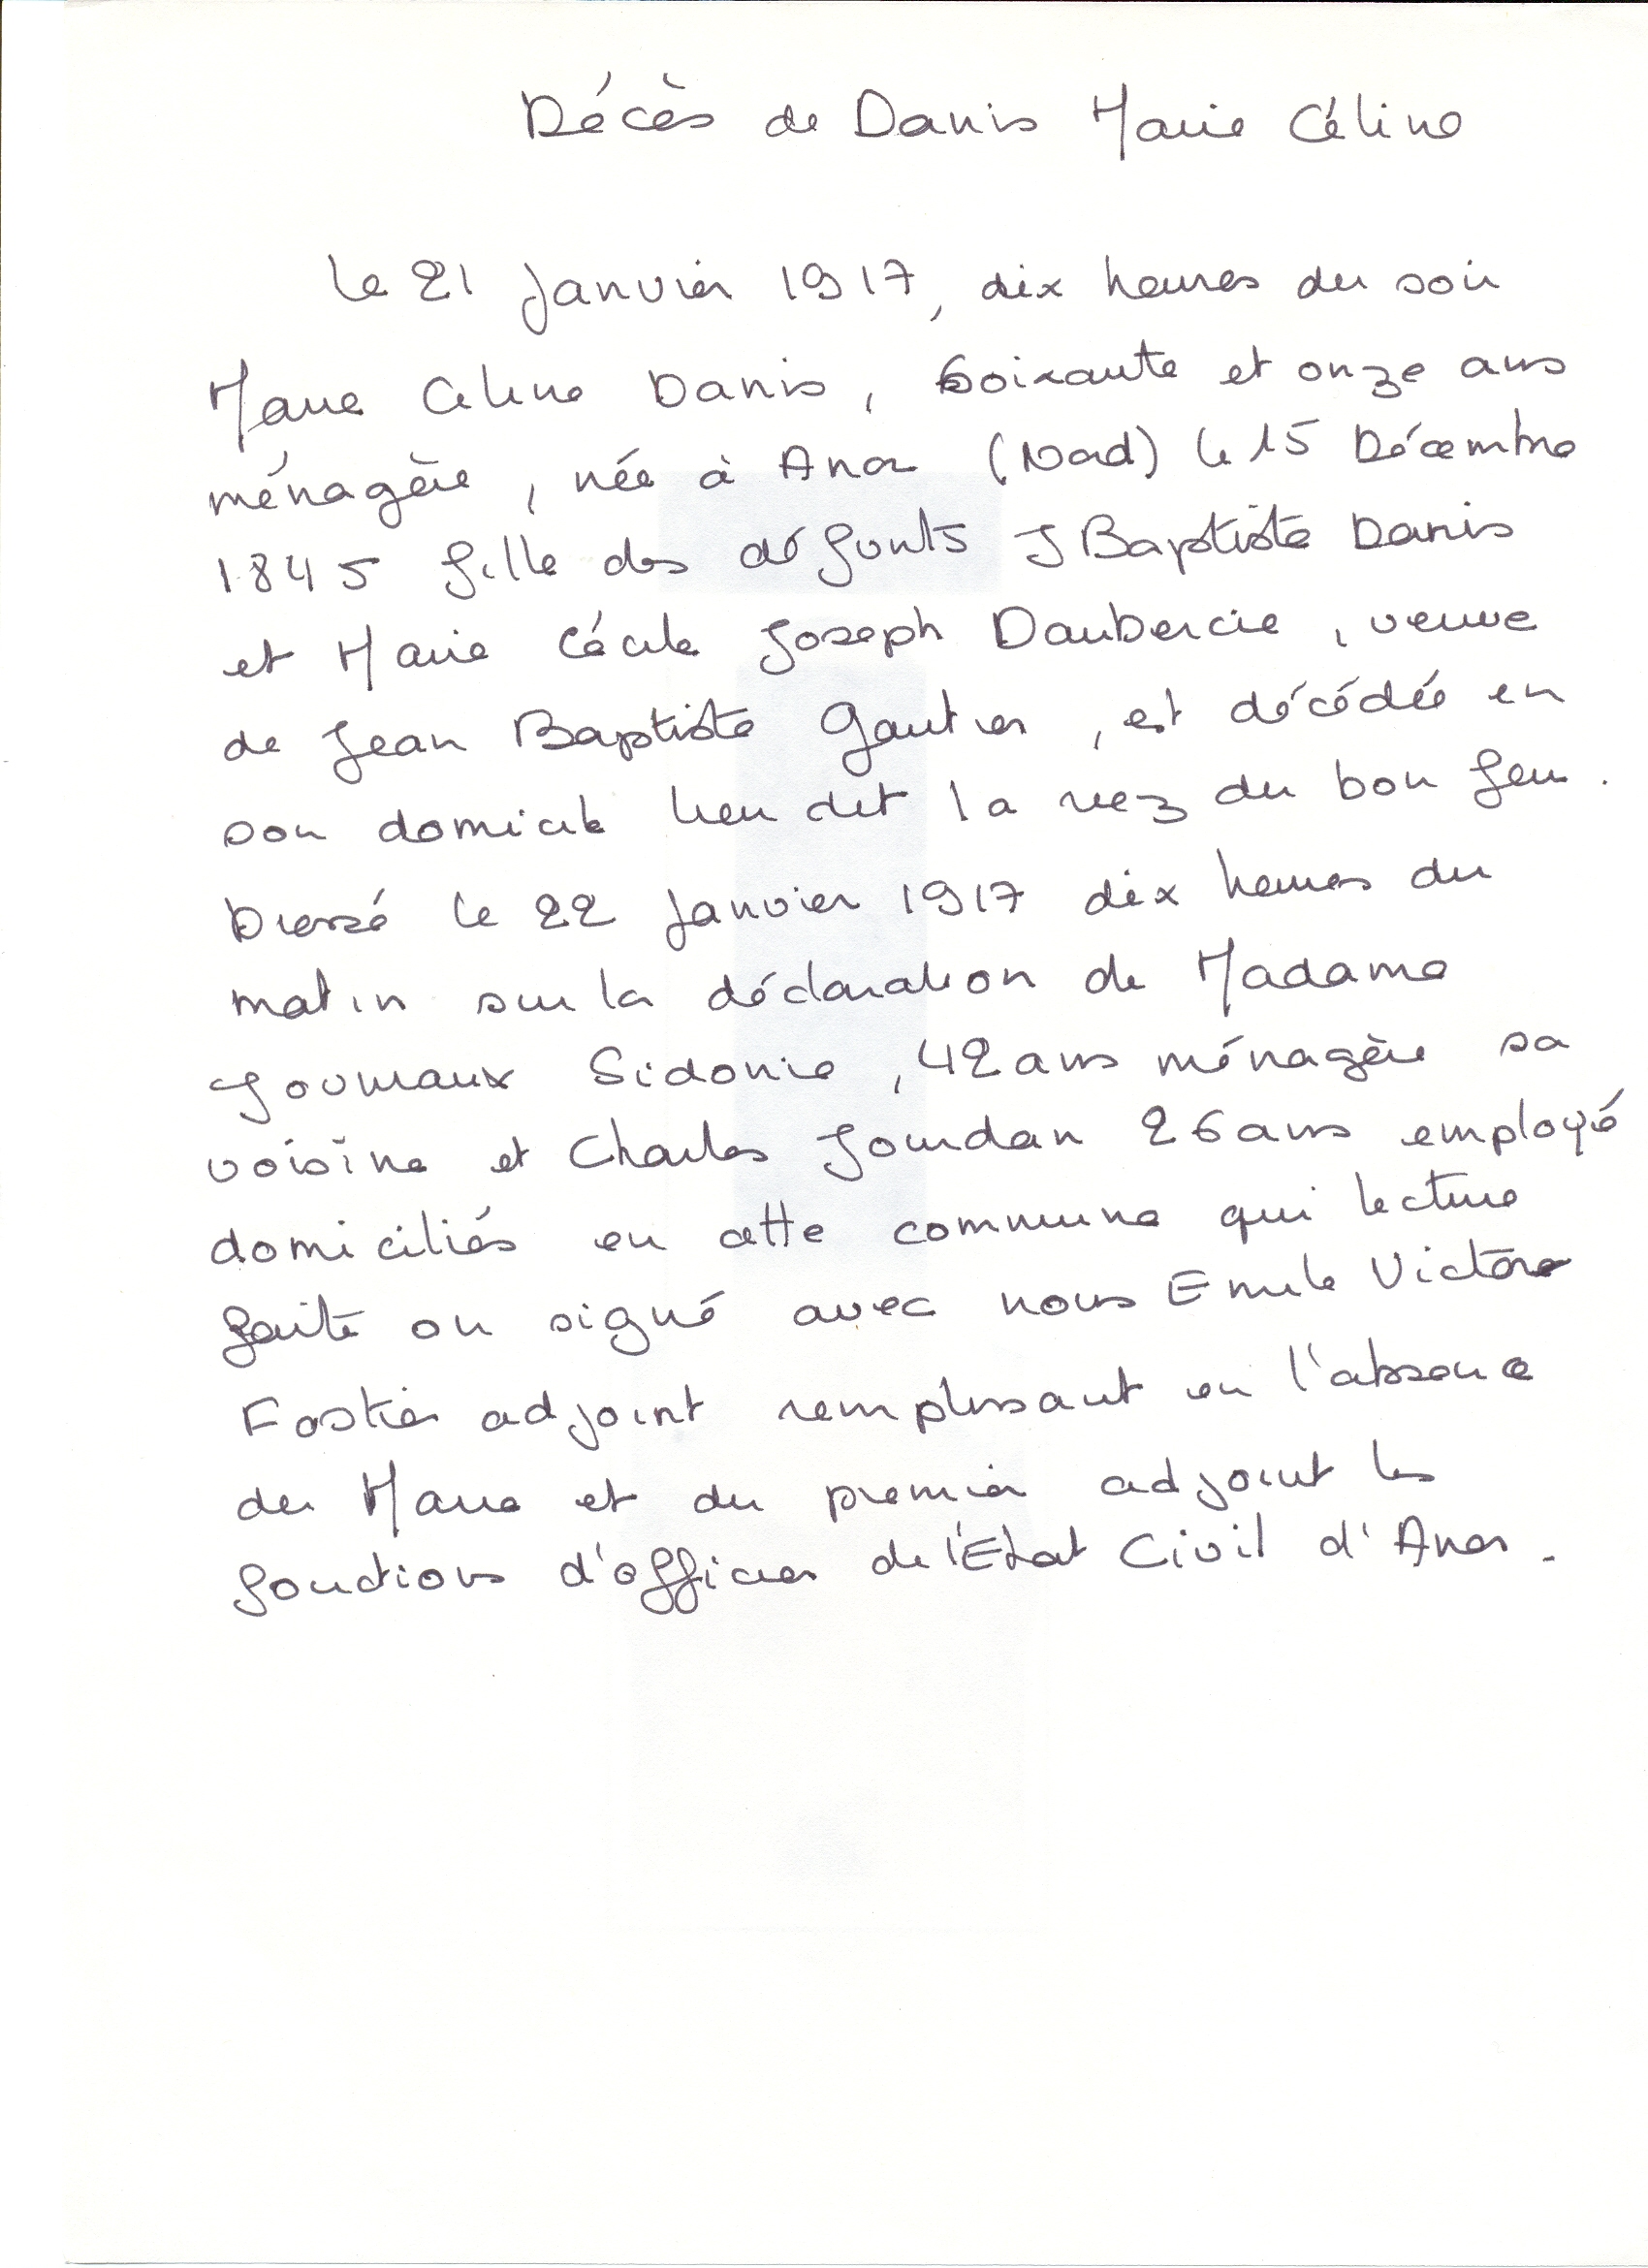 Décès de Danis Marie Céline
Le 21 Janvier 1917, dix heures du soir
Marie Céline Danis, soixante et onze ans
ménagère, née à Anor (Nord) le 15 Décembre
1845 fille des défunts J Baptiste Danis
et Marie Cécile Joseph Daubercie, veuve
de Jean Baptiste Gautier, est décédée en
son domicile lieu dit la rez du bon feu.
Dressé le 22 Janvier 1917 dix heures du
matin sur la déclaration de Madame
Journaux Sidonie, 42 ans ménagère sa
voisine et Charles Jourdan 26 ans employé
domiciliés en cette commune qui lecture
faite on signé avec nous Emile Victor
Fostier adjoint remplissant en l'absence
du Maire et du premier adjoint les
fonctions d'officier de l'Etat Civil d'Anor.